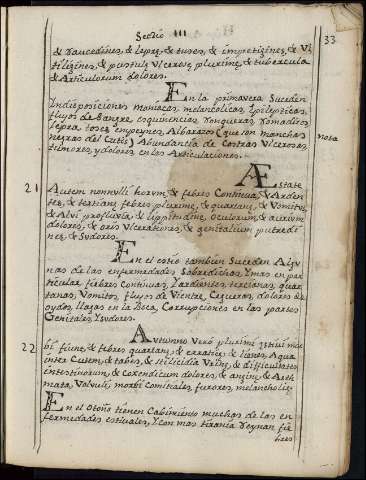 Sectio III
33
& raucedines, & lepre, & tuses, & impetigines, & Vi
tiligines, & pustule Vlcerose plurime, & tubercula
& Articulorum dolores.
En la primavera Suceden
Indisposiciones maniacas, melancolicas, Epilepticas,
flujos de Sangre, esquinencias, Ronqueras, Romadisos
lepra toses, empeynes, Albarazos (que son manchas
nota
negras del Cutis) Abundancia de Costras Vlcerosas
tumores, y dolores en las Articulaciones.
21
Æstate
Autem nonnulli horum, & febres Continuæ, & Arden
tes, & tertiane febres plurime, & quartane, & Vomitus
& Alvi profluvia, & lippitudine, Oculorum, & aurium
dolores, & oris Vlcerationes, & genitalium putredi
nes, & Sudores.
En el estio tambien Suceden Algu
nas de las enfermedades Sobredichas, Y mas en par
ticular fiebres Continuas, Y ardientes, tercianas, quar
tanas, Vomitos, flujos de Vientre, Cegueras, dolores de
oydos, llagas en la Boca, Corrupciones en las partes
Genitales Y sudores.
22
Autumno Verò plurimi Æstivi mor
bi fiunt, & febres quartane, & erratice, & lienes, Aqua
inter Cutem, & tabes, & stilicidia Vrine, & difficultates
intestinorum, & Coxendicum dolores, & angine, & Asth
mata, Volvuli, morbi Comitiales, furores, melancholie.
En el Otoño tienen Cabimiento muchas de las en
fermedades estivales, Y con mas tirania Reynan fie
bres